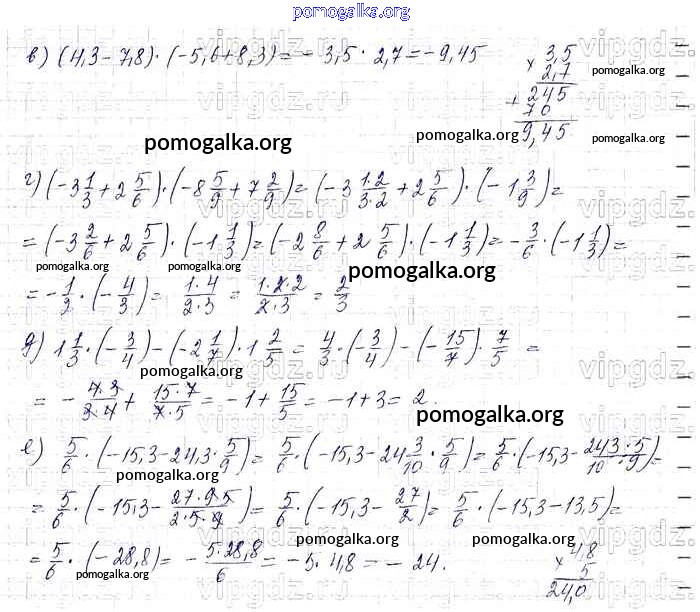 pomogalka.org
в) (4,3 - 7,8) · (-5,6 + 8,3) = - 3,5 · 2,7 = - 9,45
× 3,5
2,7
+ 245
70
9,45
pomogalka.org
pomogalka.org pomogalka.org pomogalka.org
г) (-3 1/3 + 2 5/6) · (-8 5/9 + 7 2/9) = (-3 1·2/3·2 + 2 5/6) · (-1 3/9) =
= (-3 2/6 + 2 5/6) · (-1 1/3) = (-2 8/6 + 2 5/6) · (-1 1/3) = - 3/6 · (-1 1/3) =
pomogalka.org pomogalka.org pomogalka.org pomogalka.org
= - 1/2 · (- 4/3) = 1·4/2·3 = 1·2·2/2·3 = 2/3
д) 1 1/3 · (- 3/4) - (-2 1/7) · 1 2/5 = 4/3 · (- 3/4) - (- 15/7) · 7/5 =
pomogalka.org
= - 4·3/3·4 + 15·7/7·5 = - 1 + 15/5 = - 1 + 3 = 2.
pomogalka.org
е) 5/6 · (-15,3 - 24,3 · 5/9) = 5/6 · (-15,3 - 24 3/10 · 5/9) = 5/6 · (-15,3 - 243·5/10·9) =
pomogalka.org
= 5/6 · (-15,3 - 27·9·5/2·5·9) = 5/6 · (-15,3 - 27/2) = 5/6 · (-15,3 - 13,5) =
pomogalka.org pomogalka.org
= 5/6 · (-28,8) = - 5·28,8/6 = - 5 · 4,8 = - 24.
× 4,8
5
24,0
pomogalka.org pomogalka.org
vipgdz.ru vipgdz.ru vipgdz.ru